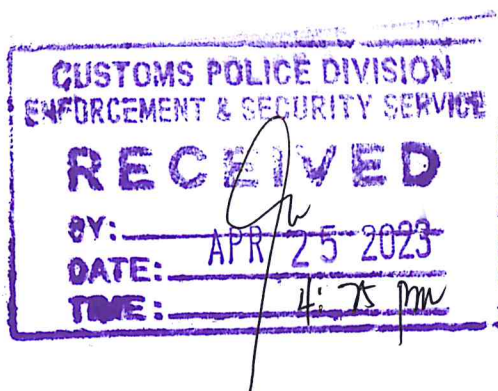 CUSTOMS POLICE DIVISION
ENFORCEMENT & SECURITY SERVICE
RECEIVED
BY:
DATE: APR 25 2023
TIME: 4: 25 pm